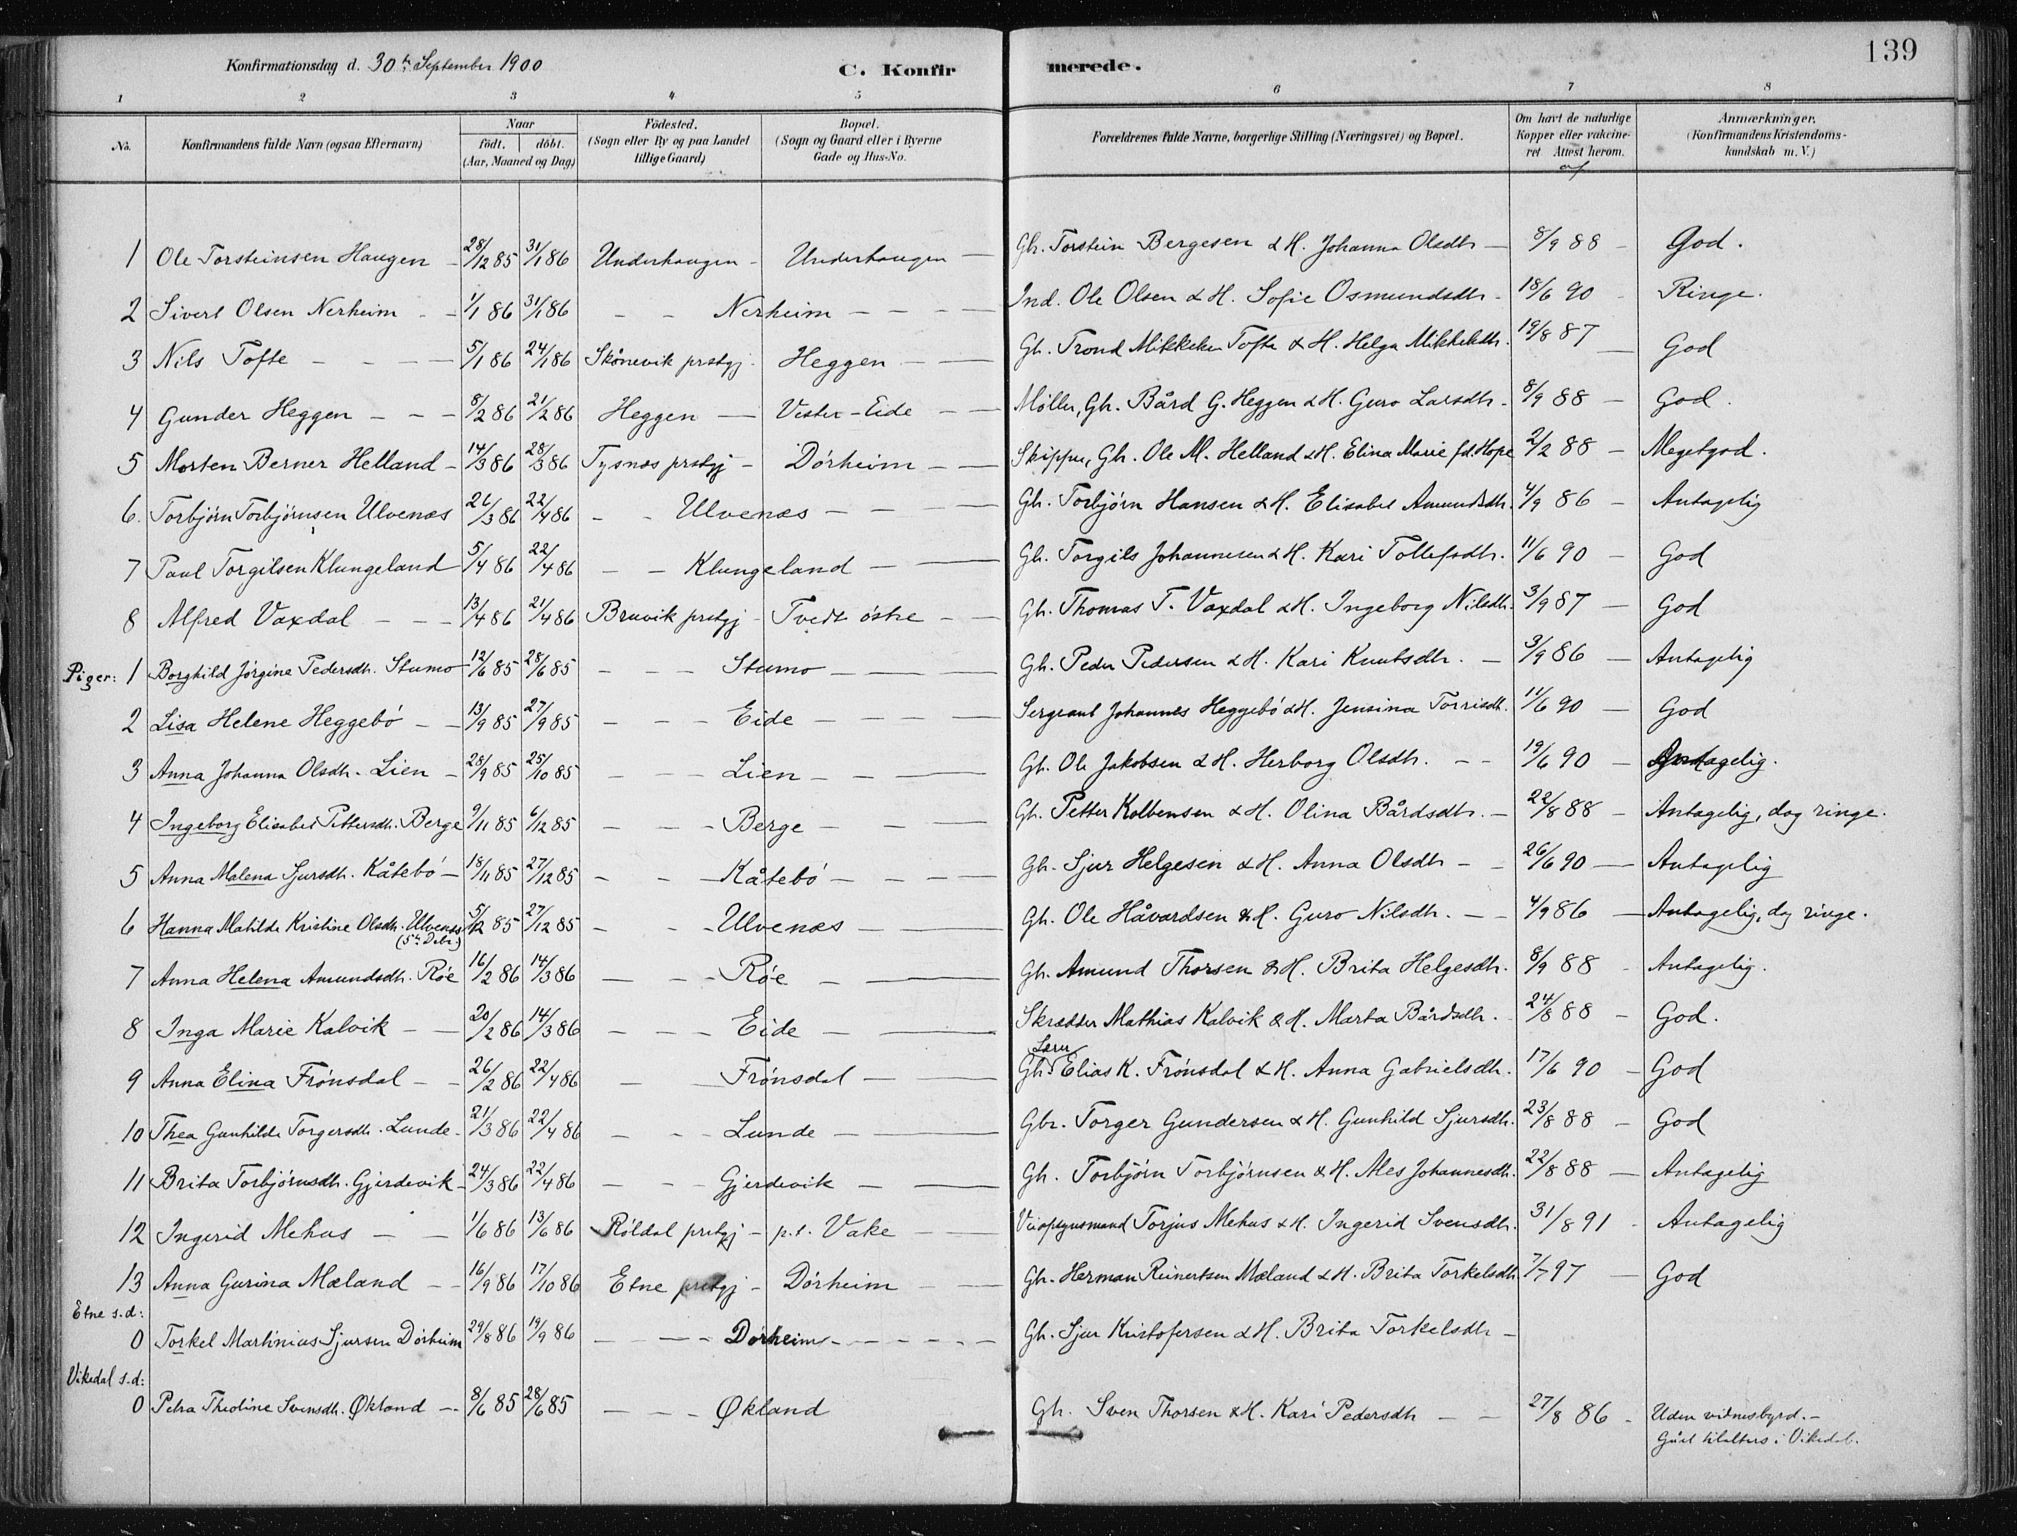 Konfirmationsdag d. 30te September 1900
C. Konfirmerede.
139
1 2 3 4 5 6 7 8
No. Konfirmandens fulde Navn (ogsaa Efternavn) Naar födt. döbt. (Aar, Maaned og Dag) Födested. (Sogn eller By og paa Landet tillige Gaard) Bopæl. (Sogn og Gaard eller i Byerne Gade og Hus-No. Forældrenes fulde Navne, borgerlige Stilling (Næringsvei) og Bopæl. Om havt de naturlige Kopper eller vakcineret Attest herom. af Anmærkninger. (Konfirmandens Kristendomskundskab m. V.)
1 Ole Torsteinsen Haugen - 28/12 85 31/1 86 Underhaugen - Underhaugen - Gb. Torstein Bergesen & H. Johanna Olsdtr - 8/9 88 - God.
2 Sivert Olsen Nerheim - - 1/1 86 31/1 86 - - Nerheim - - - - Ind. Ole Olsen & H. Sofie Osmundsdtr - 18/6 90 - Ringe.
3 Nils Tofte - - - 5/1 86 24/1 86 Skönevik prstgj. Heggen - - Gb. Trond Mikkelsen Tofte & H. Helga Mikkelsdtr. 19/8 87 - God
4 Gunder Heggen - - - 8/2 86 21/2 86 Heggen - Vester-Eide - - Møller, Gb. Bård G. Heggen & H. Guro Larsdtr. 8/9 88 - God.
5 Morten Berner Helland - 14/3 86 28/3 86 Tysnæs prstgj - Dörheim - - Skipper, Gb. Ole M. Helland & H. Elina Marie fd. Hope 2/2 88 - Megetgod.
6. Torbjörn Torbjörnsen Ulvenæs 26/3 86 22/4 86 - - Ulvenæs - - - Gb. Torbjörn Hansen & H. Elisabet Amundsdtr. 4/9 86 - Antagelig
7 Paul Torgilsen Klungeland 5/4 86 22/4 86 - - Klungeland - - Gb. Torgils Johannesen & H. Kari Tollefsdtr. 11/6 90 - God
8 Alfred Vaxdal - - - 13/4 86 21/4 86 Bruvik prstgj - Tvedt östre - - Gb. Thomas T. Vaxdal & H. Ingeborg Nilsdtr. 3/9 87 - God
Piger: 1 Borghild Jörgine Pedersdtr. Stumo 12/6 85 28/6 85 - - - Stumo - - - Gb. Peder Pedersen & H. Kari Knutsdtr. - 3/9 86 - Antagelig
2 Lisa Helene Heggebö - - 13/9 85 27/9 85 - - - Eide - - - Sergeant Johannes Heggebö & H. Jensina Torrisdtr. 11/6 90 - God
3 Anna Johanna Olsdtr. Lien - 28/9 85 25/10 85 - - Lien - - - Gb. Ole Jakobsen & H. Herborg Olsdtr. - - 19/6 90 - Antagelig.
4 Ingeborg Elisabet Pettersdtr. Berge 9/11 85 6/12 85 - - - Berge - - - Gb. Petter Kolbensen & H. Olina Bårdsdtr. - 22/8 88 - Antagelig, dog ringe.
5 Anna Malena Sjursdtr. Kåtebö - 18/11 85 27/12 85 - - - Kåtebö - - - - Gb. Sjur Helgesen & H. Anna Olsdtr - - 26/6 90 - Antagelig
6 Hanna Matilde Kristine Olsdtr. Ulvenæs 5/12 85 27/12 85 - - - Ulvenæs - - - Gb. Ole Håvardsen & H. Guro Nilsdtr. - - 4/9 86 - Antagelig, dog ringe.
(5te Debr.)
7 Anna Helena Amundsdtr. Röe 16/2 86 14/3 86 - - - Röe - - Gb. Amund Thorsen & H. Brita Helgesdtr. 8/9 88 - Antagelig.
8 Inga Marie Kalvik - - 20/2 86 14/3 86 - - - Eide - - Skrædder Mathias Kalvik & H. Marta Bårdsdtr. 24/8 88 - God.
Lærer
9 Anna Elina Frönsdal - - 26/2 86 22/4 86 - - Frönsdal - - Gb. Elias K. Frönsdal & H. Anna Gabrielsdtr. 17/6 90 - God
10 Thea Gunhilde Torgersdtr. Lunde - 21/3 86 22/4 86 - - - Lunde - - Gbr. Torger Gundersen & H. Gunhild Sjursdtr. 23/8 88 - God
11 Brita Torbjörnsdtr. Gjerdevik - 24/3 86 22/4 86 - - - Gjerdevik - - Gb. Torbjörn Torbjörnsen & H. Ales Johannesdtr. 22/8 88 - Antagelig
12 Ingerid Mehus - - 1/6 86 13/6 86 Röldal prstgj - p.t. Vake - - Veiopsynsmand Torjus Mehus & H. Ingerid Svensdtr. 31/8 91 - Antagelig
13 Anna Gurina Mæland - - 16/9 86 17/10 86 Etne prstgj - Dörheim - - Gb. Herman Reinertsen Mæland & H. Brita Torkelsdtr 7/7 97 - God
Etne s.d:
0 Torkel Martinius Sjursen Dörheim 29/8 86 19/9 86 - - - Dörheim - - - - Gb. Sjur Kristofersen & H. Brita Torkelsdtr -
Vikedal s.d:
0 Petra Theoline Svensdtr. Økland - 8/6 85 28/6 85 - - - Økland Gb. Sven Thorsen & H. Kari Pedersdtr - - 27/8 86 - Uden vidnesbyrd. -
Gået tilalters i Vikedal.